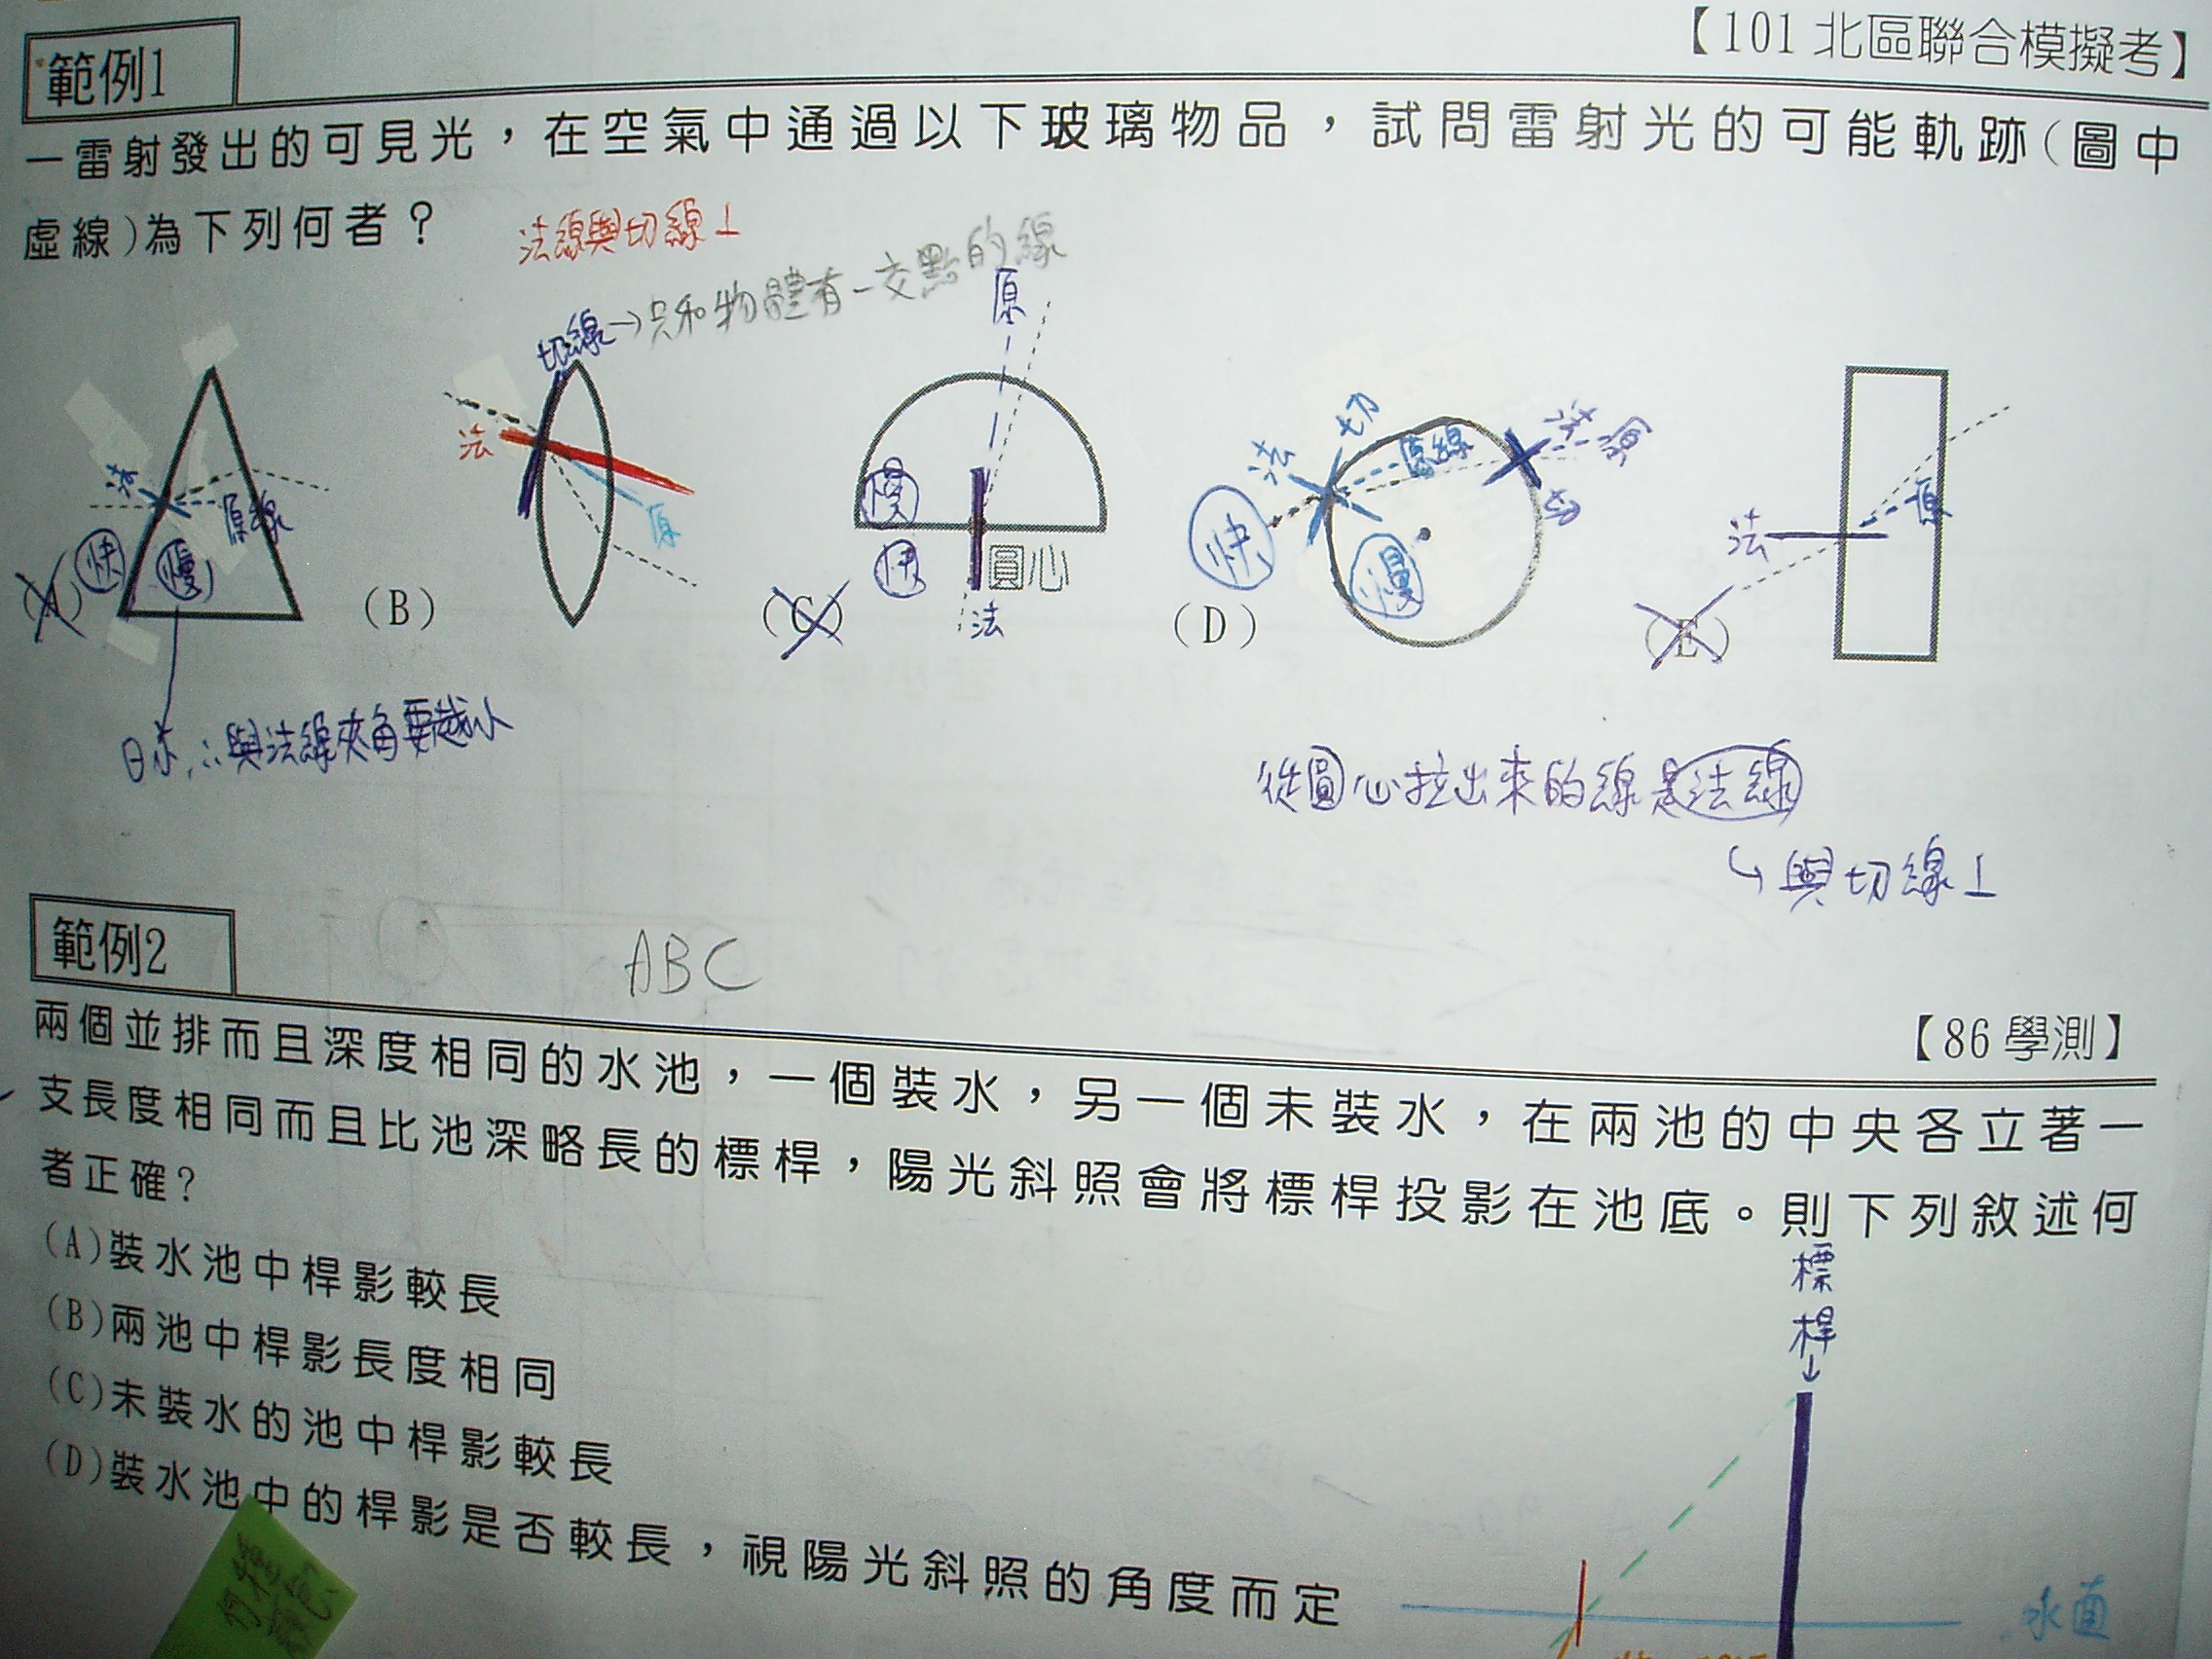 【101 北區聯合模擬考】
範例1
一雷射發出的可見光，在空氣中通過以下玻璃物品，試問雷射光的可能軌跡(圖中
虛線)為下列何者？
法線與切線⊥
切線→只和物體有一交點的線
原
法
原線
快
慢
(A)
法
原
(B)
慢
快
圓心
法
(C)
法
切
原線
法
原
切
快
慢
(D)
法
原
(E)
∴與法線夾角要越小
從圓心拉出來的線是法線
↳與切線⊥
範例2
ABC
【86 學測】
兩個並排而且深度相同的水池，一個裝水，另一個未裝水，在兩池的中央各立著一
支長度相同而且比池深略長的標桿，陽光斜照會將標桿投影在池底。則下列敘述何
者正確?
(A)裝水池中桿影較長
(B)兩池中桿影長度相同
(C)未裝水的池中桿影較長
(D)裝水池中的桿影是否較長，視陽光斜照的角度而定
標
桿
↓
水面